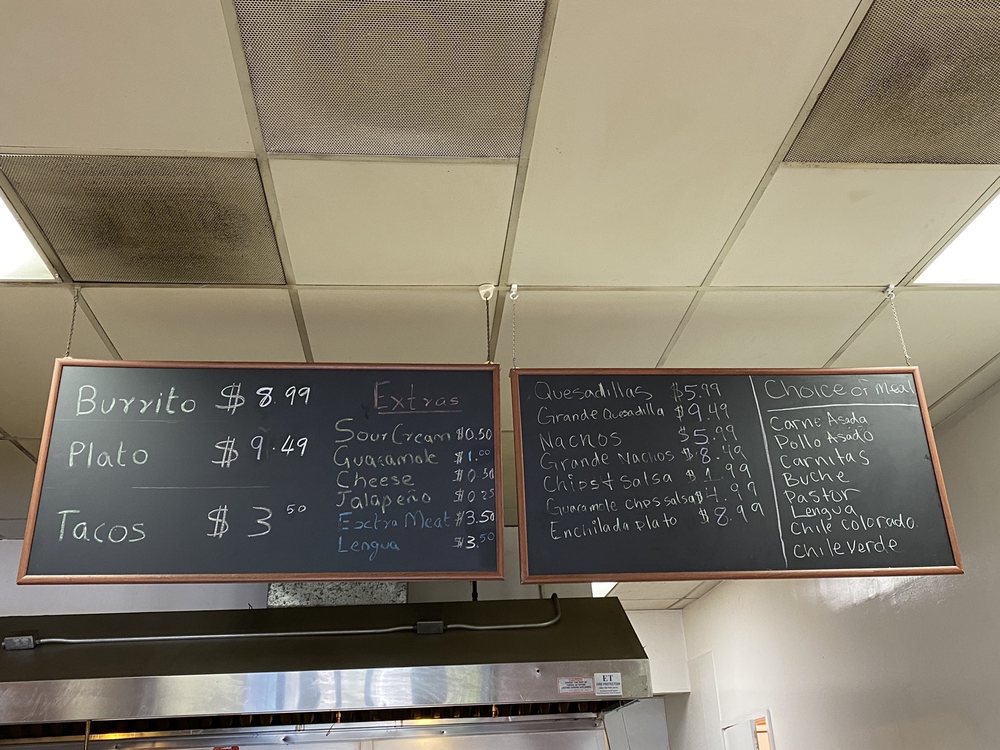 Burrito $ 8.99
Plato $ 9.49
Tacos $ 3 50
Extras
Sour Cream $0.50
Guacamole $1.00
Cheese $0.50
Jalapeño $0.25
Exctra Meat $3.50
Lengua $3.50
Quesadillas $5.99
Grande Quesadilla $9.49
Nachos $5.99
Grande Nachos $8.49
Chips + Salsa $1.99
Guacamole Chps salsa $4.99
Enchilada plato $8.99
Choice of meat
Carne Asada
Pollo Asado
Carnitas
Buche
Pastor
Lengua
Chile Colorado.
Chile verde
ET